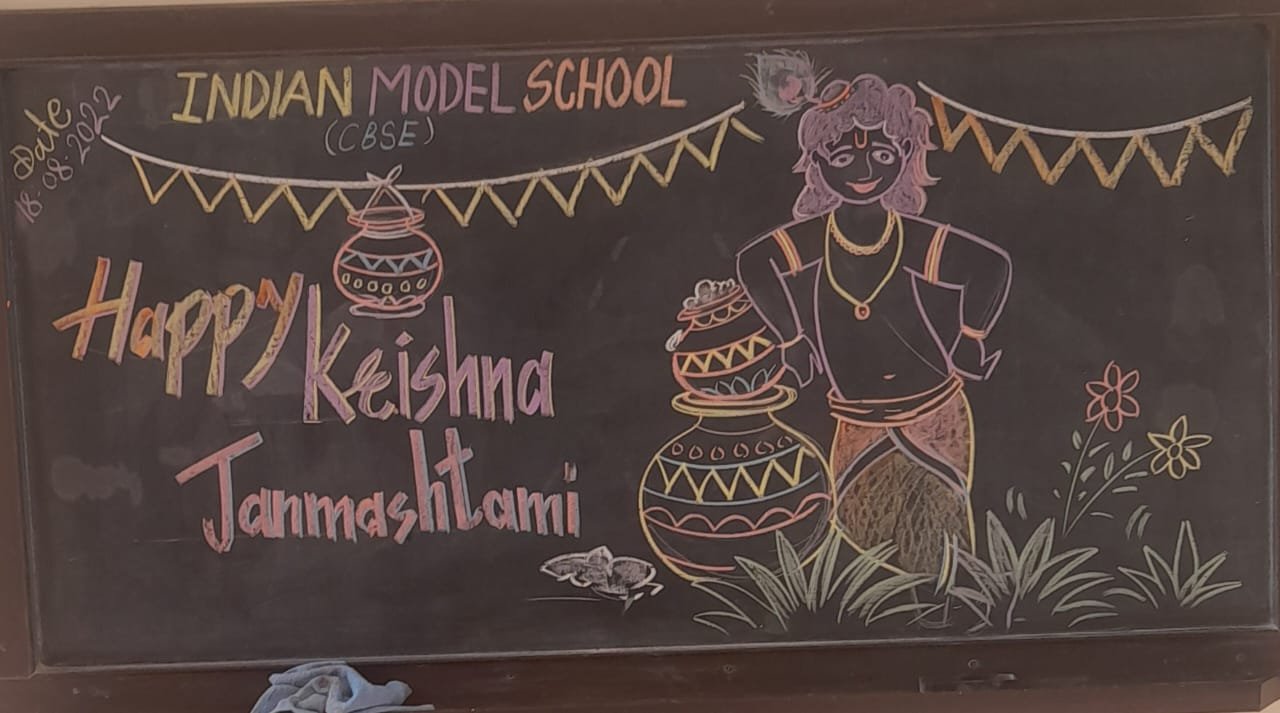 INDIAN MODEL SCHOOL
(CBSE)
Date
18-08-2022
Happy
Krishna
Janmashtami